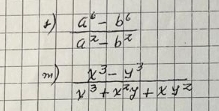 s) (a⁶ - b⁶)/(a² - b²)
m) (x³ - y³)/(x³ + x²y + xy²)